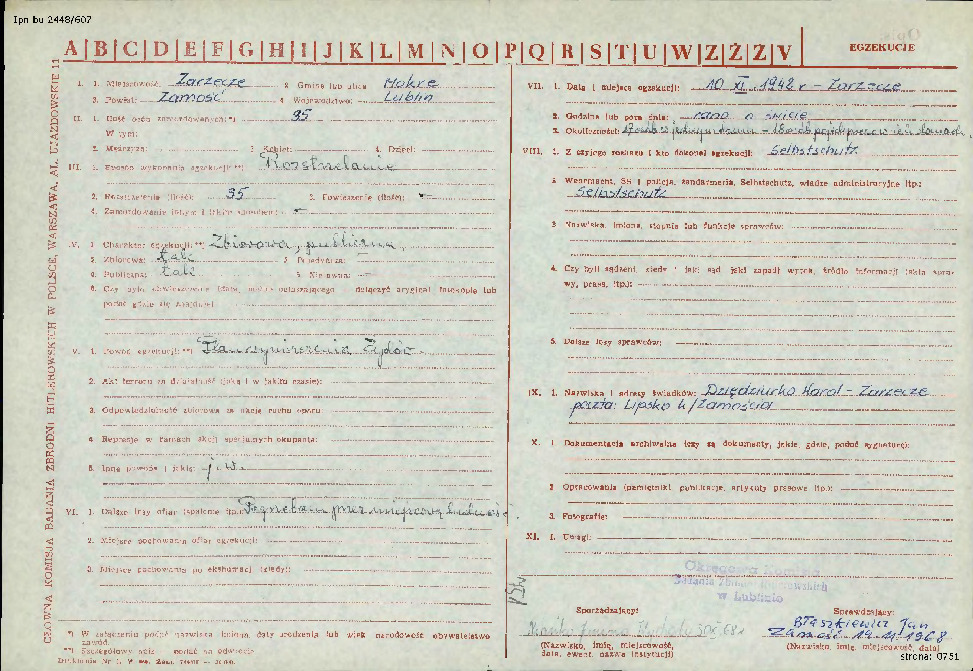 Ipn bu 2448/607
A B C D E F G H I J K L M N O P Q R S T U W Z Ż Ź V
EGZEKUCJE
GŁÓWNA KOMISJA BADANIA ZBRODNI HITLEROWSKICH W POLSCE, WARSZAWA, AL. UJAZDOWSKIE 11
I. 1. Miejscowość: Zarzecze 2. Gmina lub ulica Mokre
3. Powiat: Zamość 4. Województwo: Lublin
II. 1. Ilość osób zamordowanych:*) 35
W tym:
2. Mężczyzn: 3. Kobiet: 4. Dzieci:
III. 1. Sposób wykonania egzekucji:**) Rozstrzelanie
2. Rozstrzelenie (ilość): 35 3. Powieszenie (ilość): —
4. Zamordowanie innym i jakim sposobem: —
IV. 1. Charakter egzekucji:**) Zbiorowa, publiczna.
2. Zbiorowa: tak 3. Pojedyńcza: —
4. Publiczna: tak 5. Niejawna: —
6. Czy było obwieszczenie (data,
podać gdzie się znajduje)
V. 1. Powód egzekucji:**) Plan wyniszczenia Żydów.
2. Akt terroru za działalność (jaką i w jakim czasie):
3. Odpowiedzialność zbiorowa za akcję ruchu oporu
4. Represje w ramach akcji specjalnych okupanta:
5. Inne powody i jakie: j.w.
VI. 1. Dalsze losy ofiar (spalenie itp.) Pogrzebani przez miejscową ludność
2. Miejsce pochowania ofiar egzekucji:
3. Miejsce pochowania po ekshumacji (kiedy):
*) W załączeniu podać nazwiska imiona daty urodzenia lub wiek narodowość obywatelstwo
zawód.
**) Szczegółowy opis podać na odwrocie
VII. 1. Data i miejsce egzekucji: 10 XI. 1942 r - Zarzecze
2. Godzina lub pora dnia: rano o świcie
3. Okoliczności:
VIII. 1. Z czyjego rozkazu i kto dokonał egzekucji: Selbstschutz
2. Wehrmacht, SS i policja, żandarmeria, Selbstschutz, władze administracyjne itp.:
Selbstschutz
3. Nazwiska, imiona, stopnie lub funkcje sprawców:
4. Czy byli sądzeni, kiedy i jaki sąd, jaki zapadł wyrok, źródło informacji (akta spra-
wy, prasa, itp.):
5. Dalsze losy sprawców:
IX. 1. Nazwiska i adresy świadków: Dziędziurko Karol - Zarzecze
poczta: Lipsko k/Zamościa
X. 1. Dokumentacja archiwalna (czy są dokumenty, jakie, gdzie, podać sygnaturę):
2. Opracowania (pamiętniki, publikacje, artykuły prasowe itp.):
3. Fotografie:
XI. 1. Uwagi:
Okręgowa Komisja
Badania Zbrodni Hitlerowskich
w Lublinie
Sporządzający:
(Nazwisko, imię, miejscowość,
data, ewent. nazwa instytucji)
Sprawdzający:
Błaszkiewicz Jan
Zamość 19.11.1968
(Nazwisko, imię, miejscowość, data)
strona: 0751